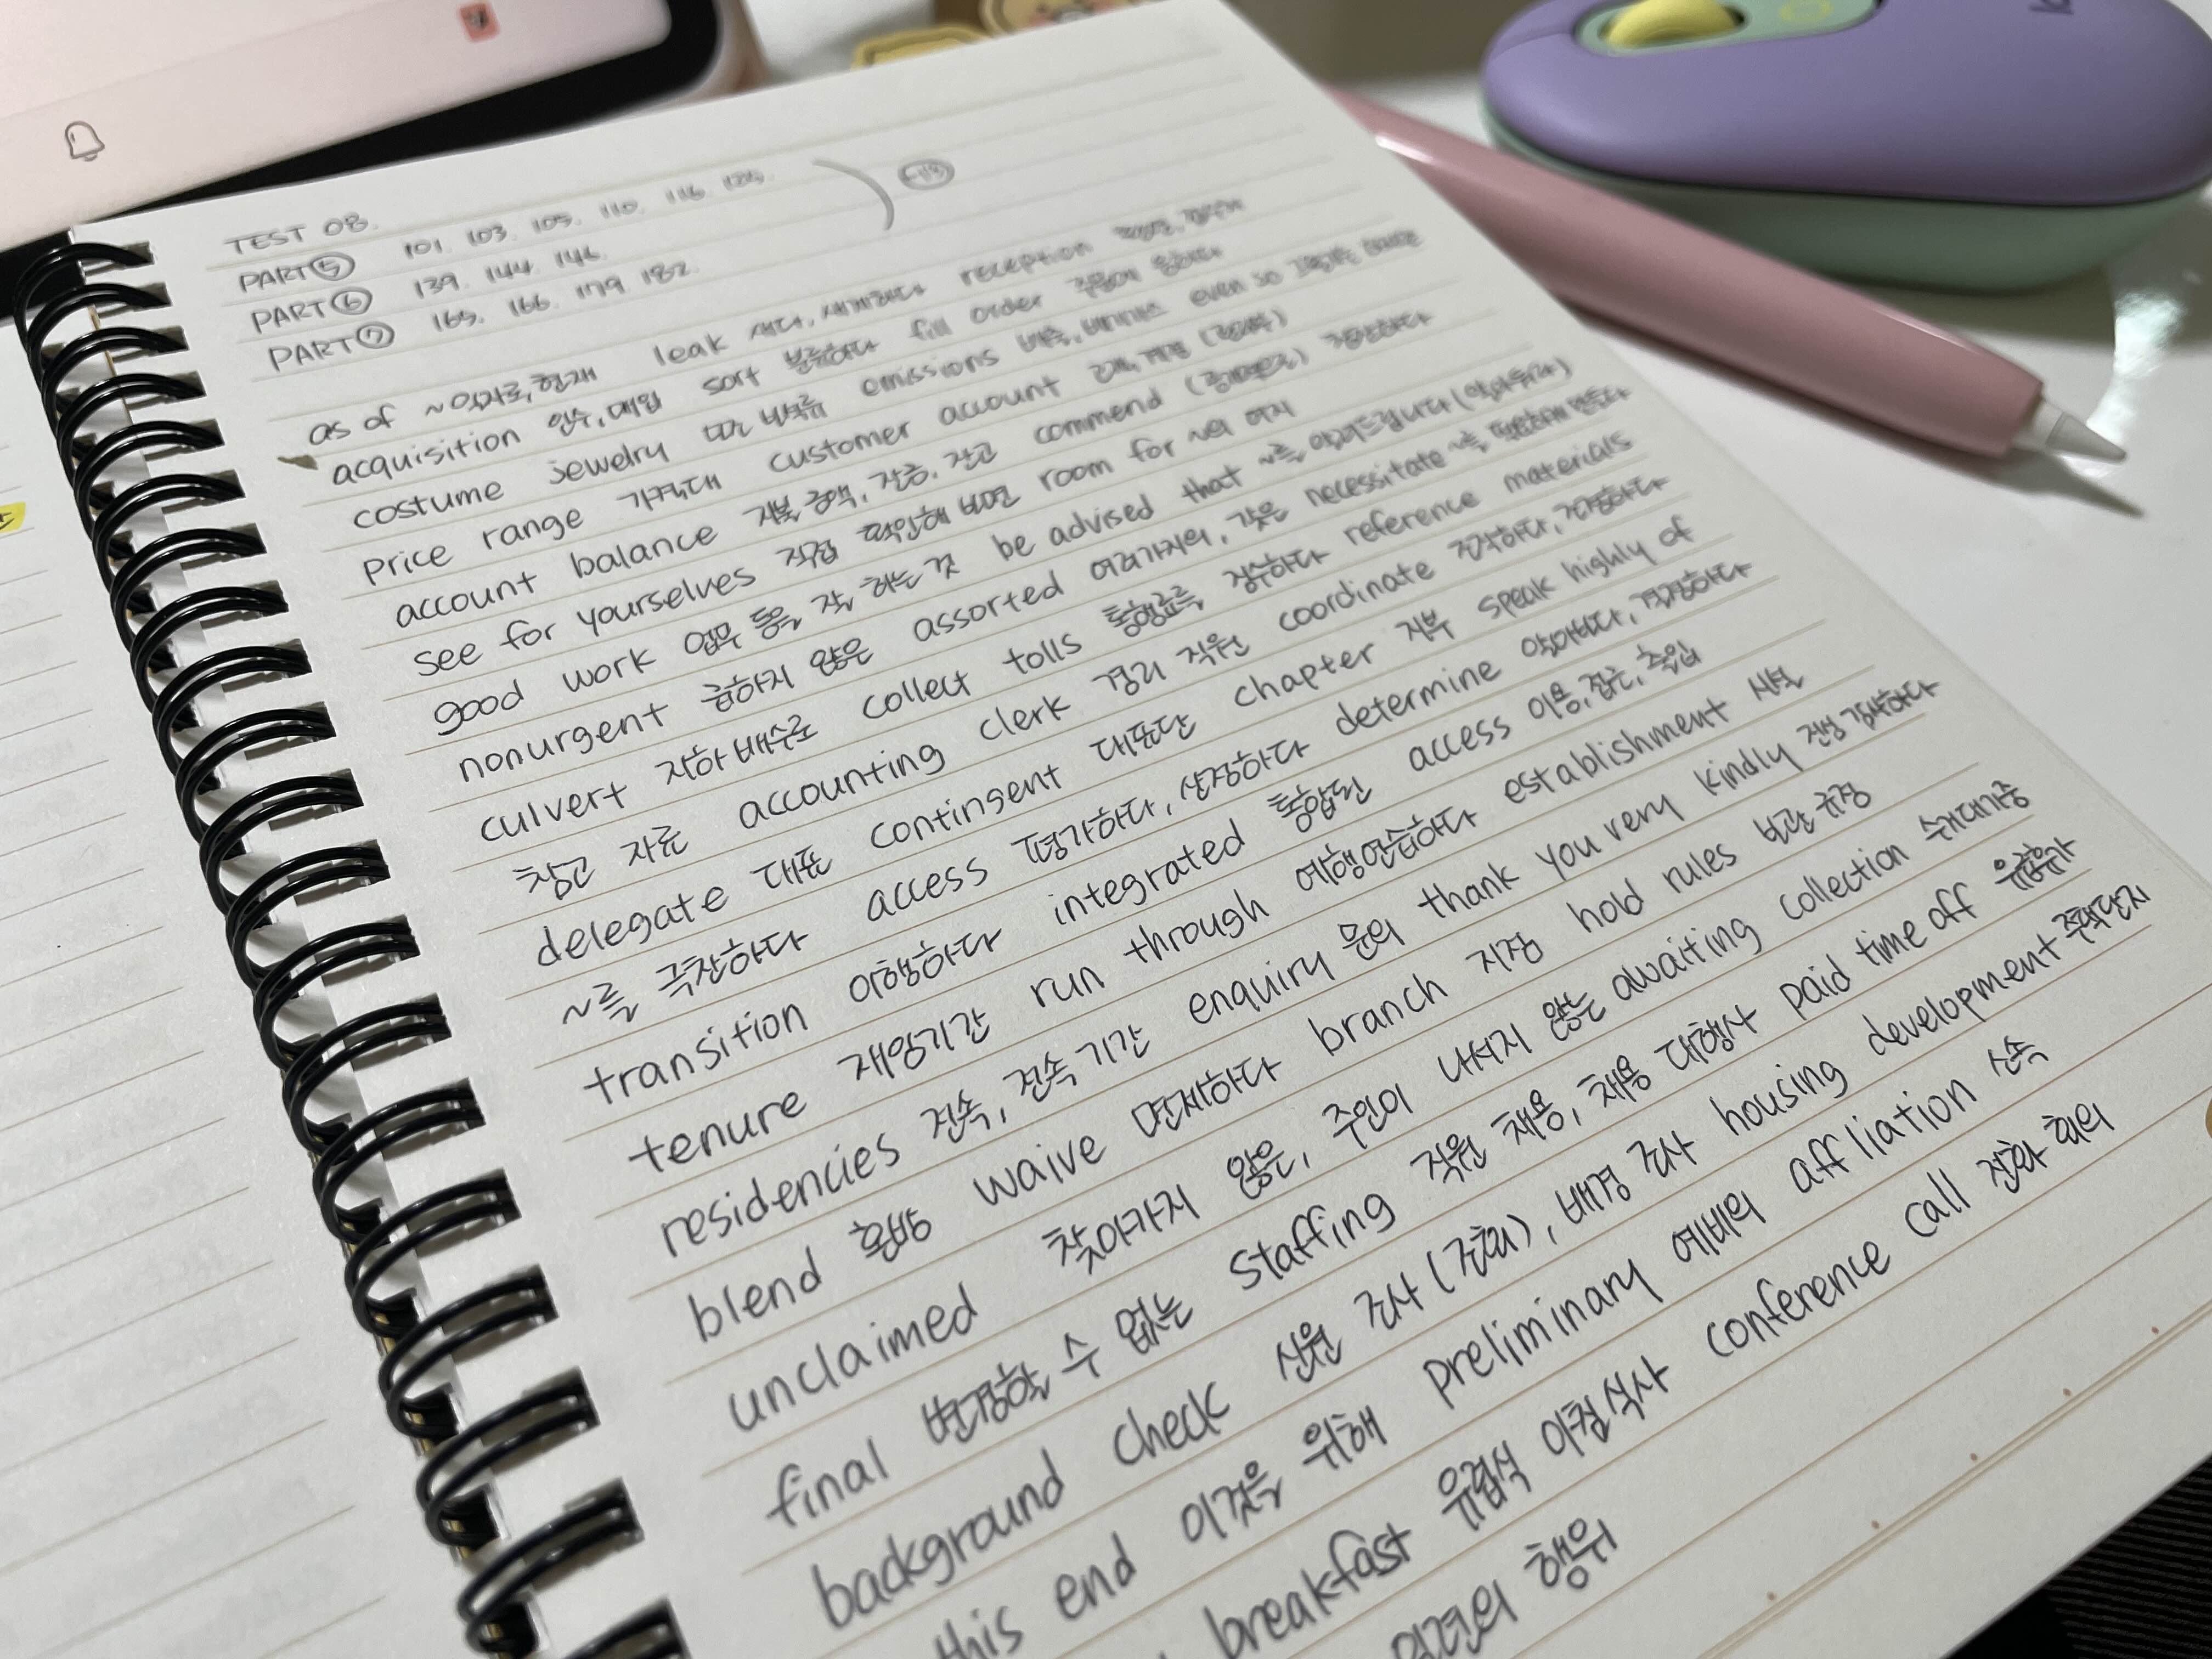 TEST 08.
PART⑤ 101. 103. 105. 110. 116. 125.
PART⑥ 139. 144. 146.
PART⑦ 165. 166. 179. 182.
as of ~일자로, 현재 leak 새다, 새게하다 reception
acquisition 인수, 매입 sort 분류하다 fill order 주문에 응하다
costume jewelry 모조 보석류 emissions 배출, 배기가스 even so
price range 가격대 customer account 고객 계정
account balance 지불 금액, 잔금, 잔고 commend (공개적으로) 칭찬하다
see for yourselves 직접 확인해 보면 room for ~의 여지
good work 업무 등을 잘 하는 것 be advised that ~를 알려드립니다 (알아둬라)
nonurgent 급하지 않은 assorted 여러가지의, 갖은 necessitate ~를 필요하게 만들다
culvert 지하 배수로 collect tolls 통행료를 징수하다 reference materials
참고 자료 accounting clerk 경리 직원 coordinate 조직하다, 조정하다
delegate 대표 contingent 대표단 chapter 지부 speak highly of
~를 극찬하다 access 평가하다, 산정하다 determine 알아내다, 결정하다
transition 이행하다 integrated 통합된 access 이용, 접근, 출입
tenure 재임기간 run through 예행연습하다 establishment 시설
residencies 전속, 전속 기간 enquiry 문의 thank you very kindly 진심 감사하다
blend 혼방 waive 면제하다 branch 지점 hold rules 보관 규정
unclaimed 찾아가지 않은, 주인이 나서지 않는 awaiting collection 수거대기중
final 변경할 수 없는 staffing 직원 채용, 채용 대행사 paid time off 유급휴가
background check 신원 조사 (조회), 배경 조사 housing development 주택단지
this end 이것을 위해 preliminary 예비의 affliation 소속
breakfast 유럽식 아침식사 conference call 전화 회의
의견의 행위